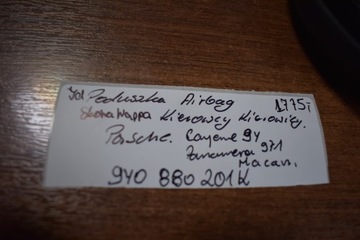 Poduszka Airbag 1775i
Skóra Nappa Kierowcy Kierownicy.
Porsche. Cayene 9Y
Panamera 971
Macan.
9Y0 880 201K